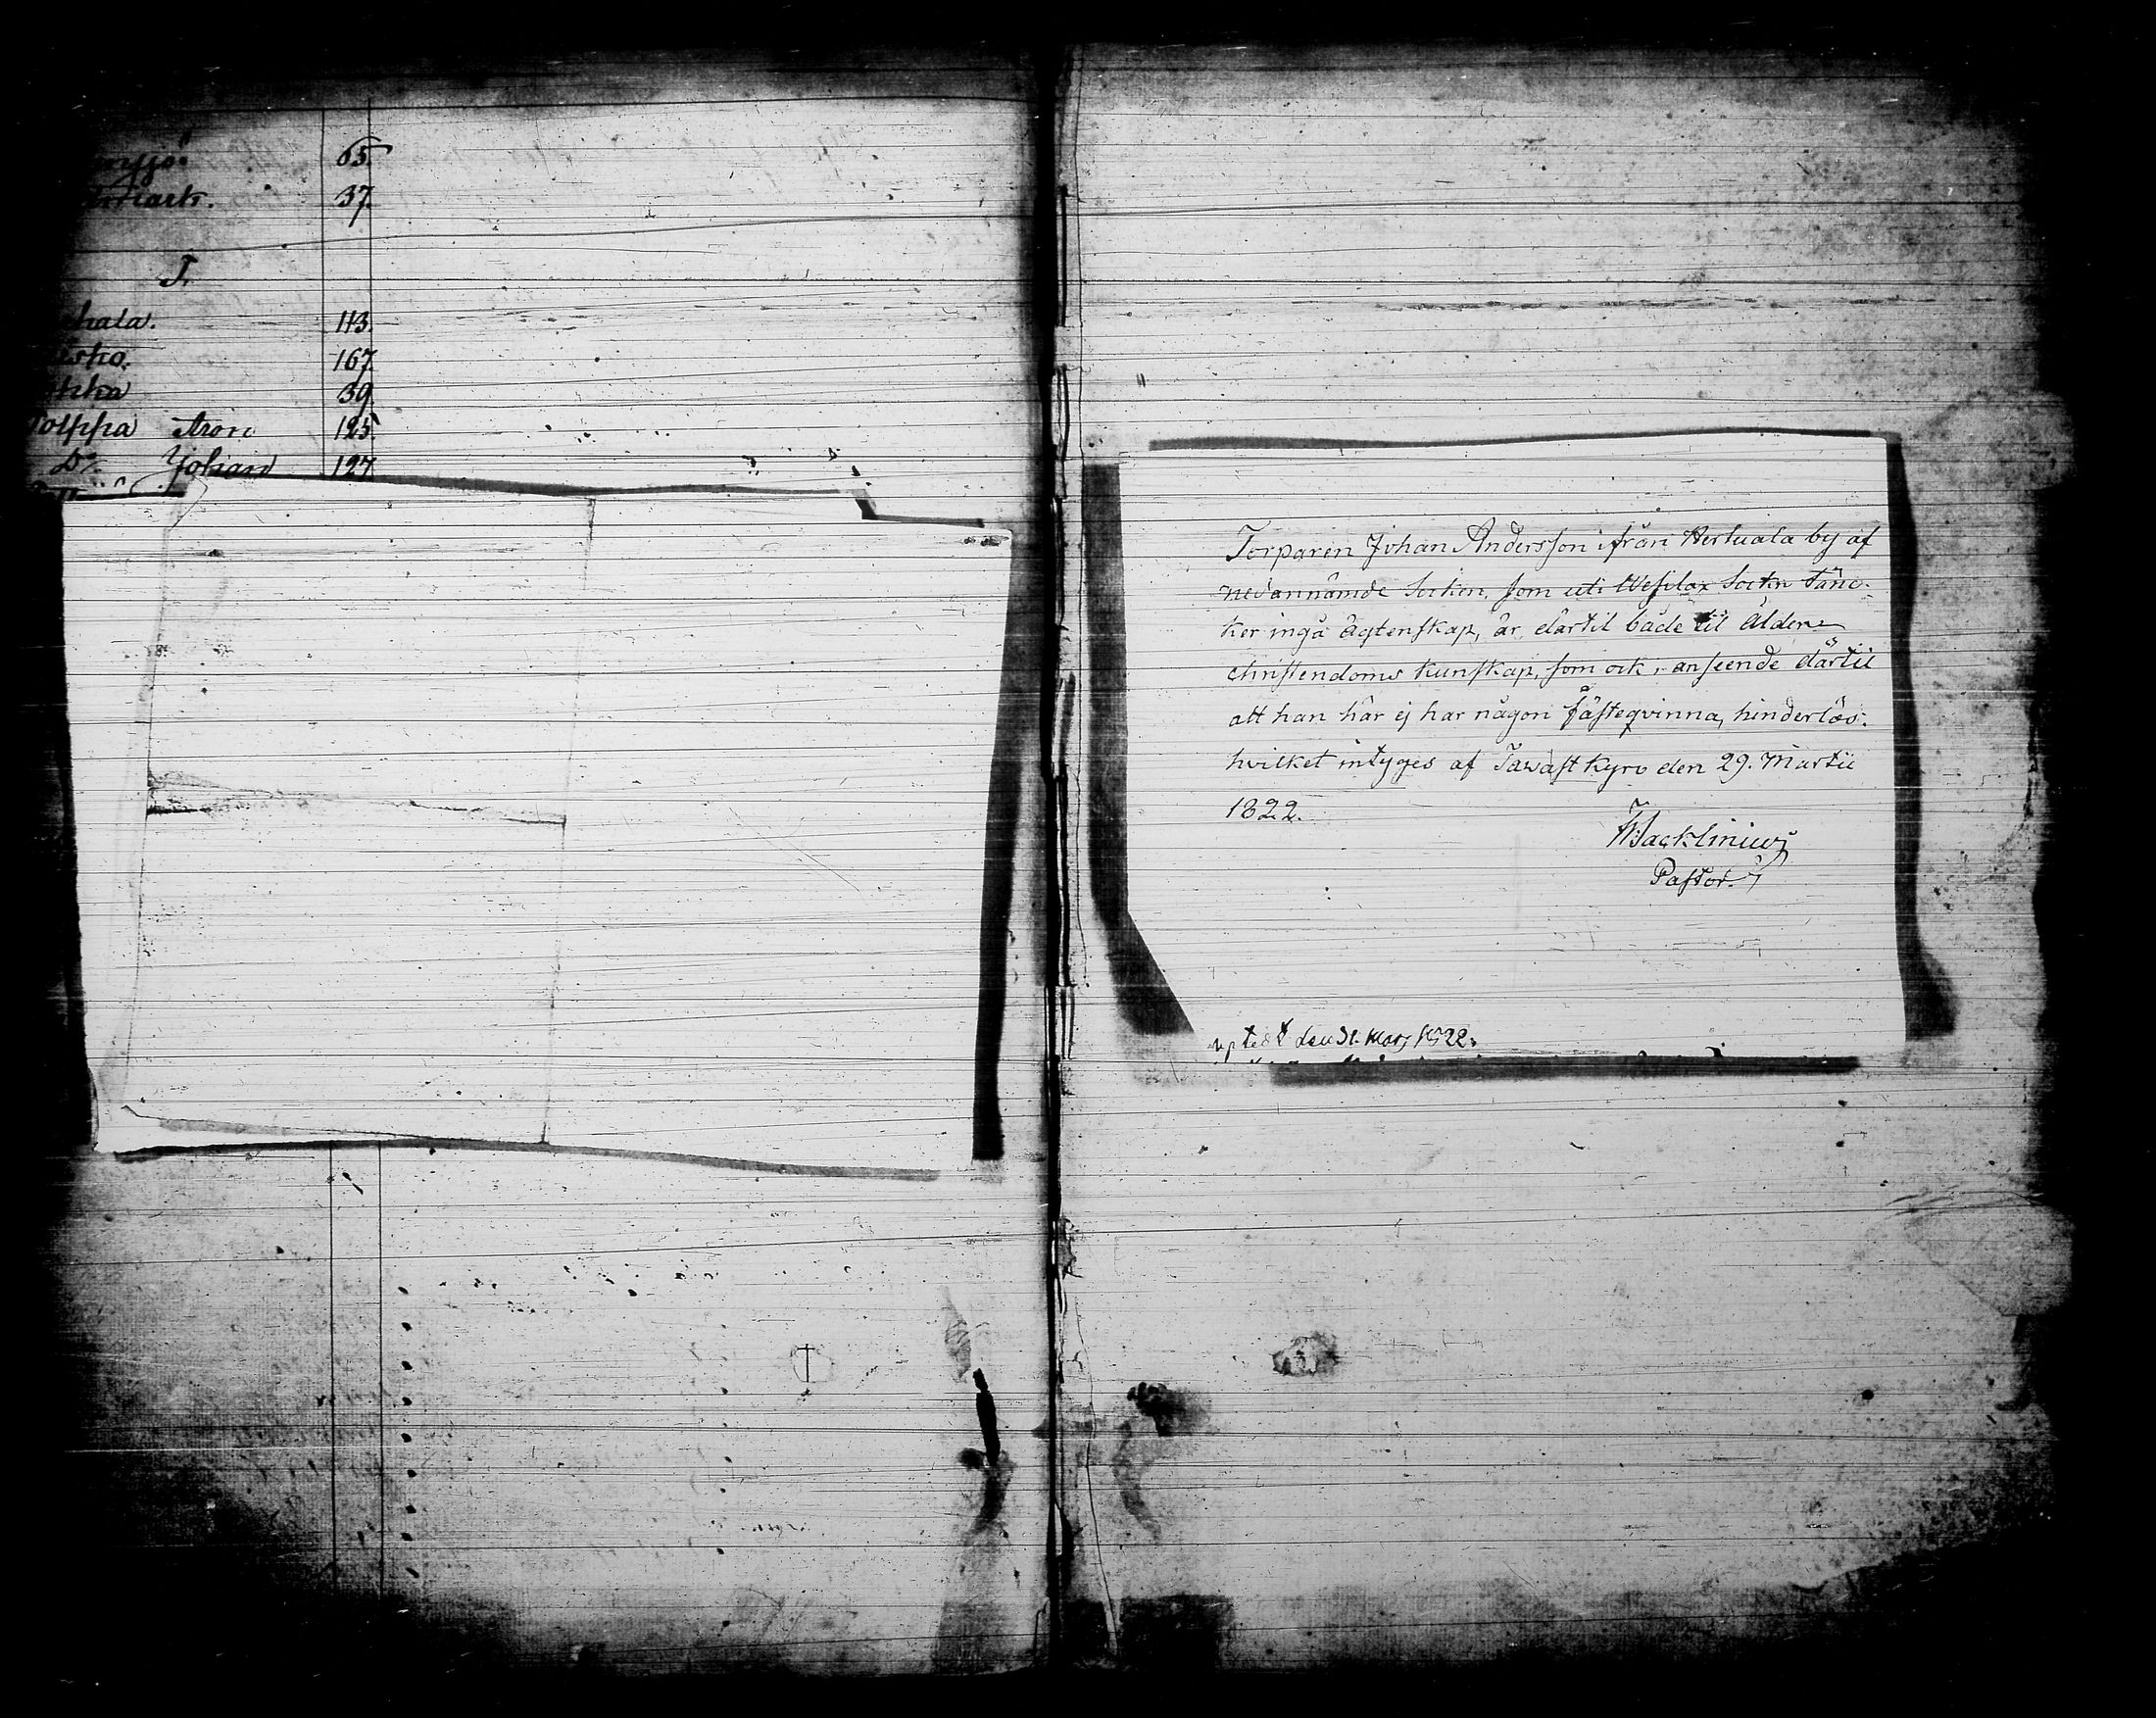 65.
37.
T.
113.
167.
39.
Aron 125.
Do. Johan 127.
Torparen Johan Andersson ifrån Hertuala by af
nedannämde Socken, som uti Wesilax Sockn tänc-
ker ingå ägtenskap, är därtil både til ålder
christendoms kunskap, som ock i anseende därtil
att han här ej har någon fästeqvinna, hinderlös.
hvilket intyges af Tavastkyro den 29. Martii
1822.
Wacklinius
Pastor.
den 31. Mars 1822.